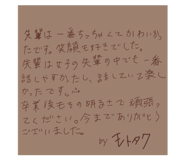 先輩は一番ちっちゃくてかわいかっ
たです。笑顔も好きでした。
先輩は女子の先輩の中でも一番
話しやすかったし、話していて楽し
かったです。
卒業後もその明るさで頑張
ってください。今までありがとう
ございました。
by モトタク